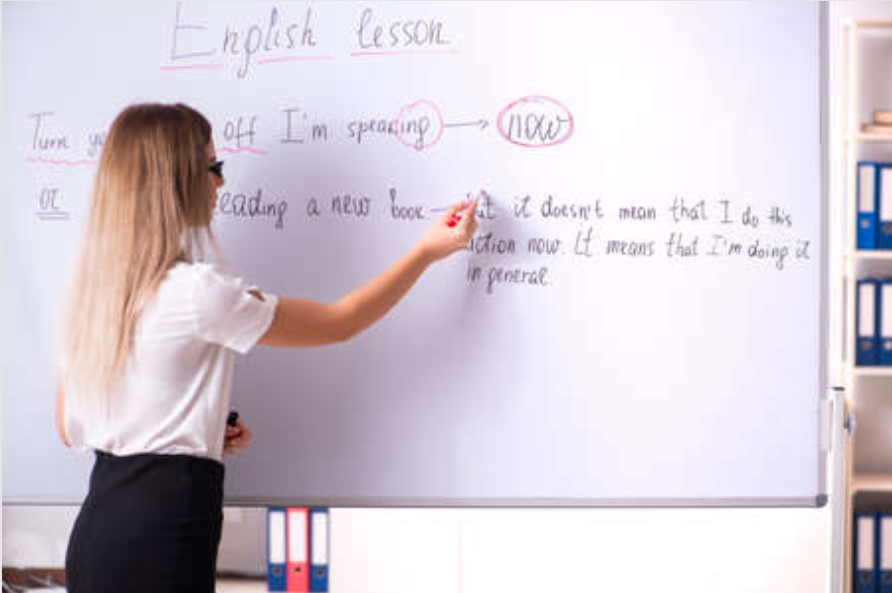 English lesson
Turn off I'm speaking → now
or eading a new book — it doesn't mean that I do this
action now. It means that I'm doing it
in general.